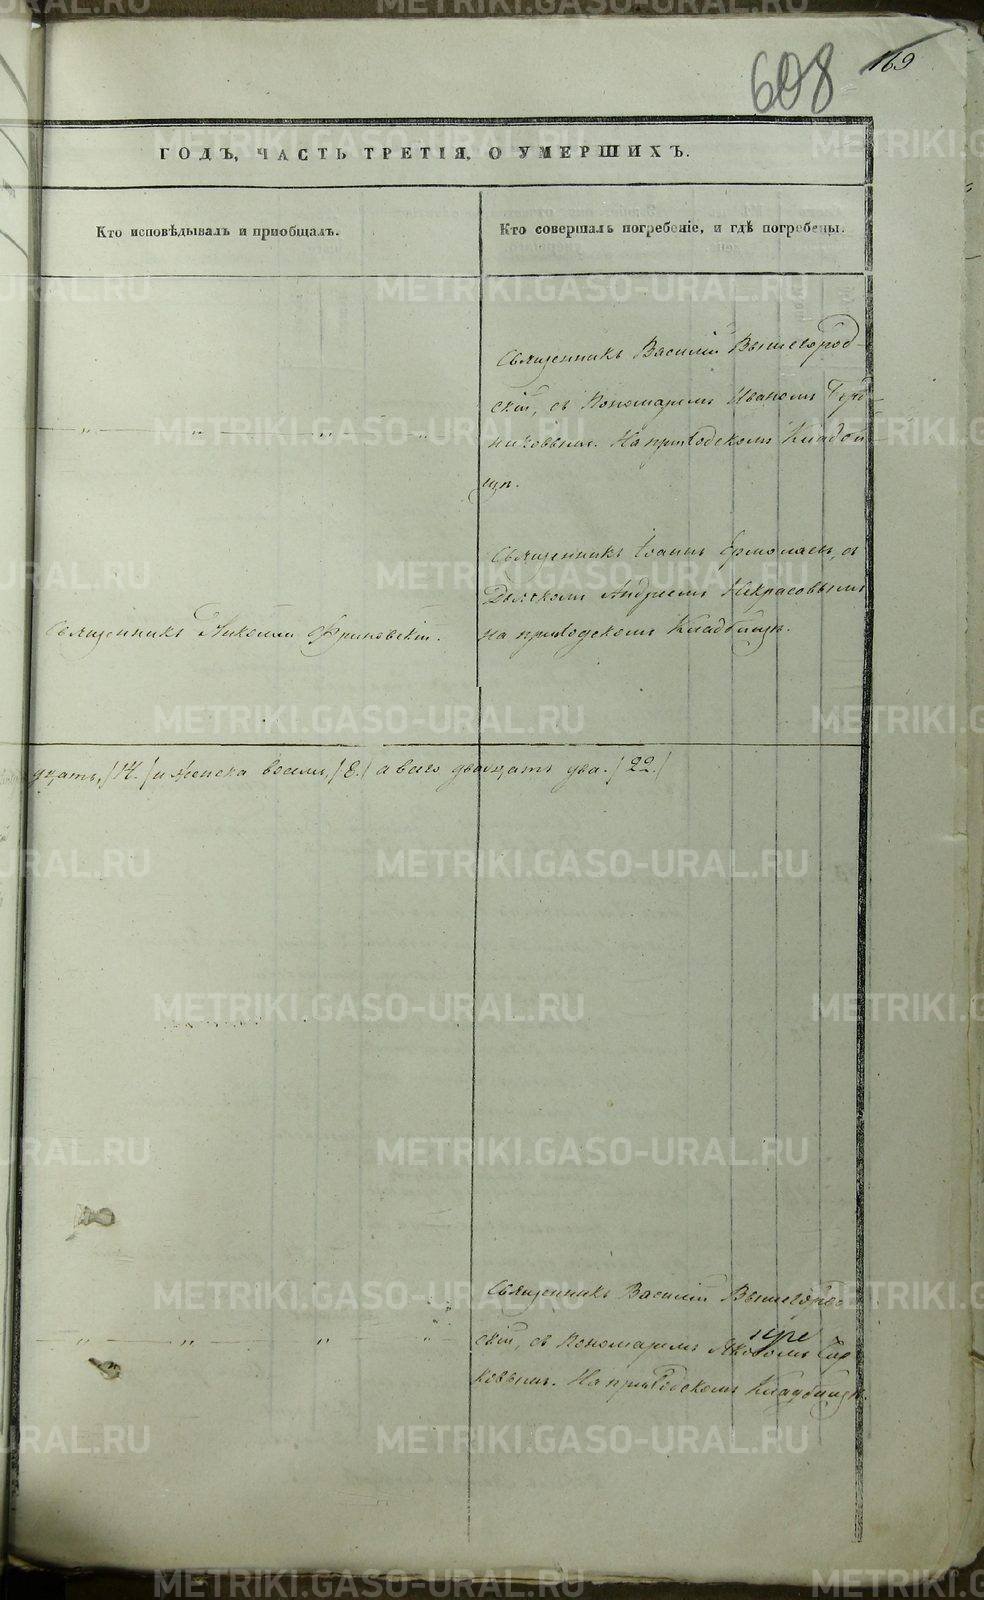 608 169
ГОДЪ, ЧАСТЬ ТРЕТІЯ, О УМЕРШИХЪ.
Кто исповѣдывалъ и пріобщалъ.
Кто совершалъ погребеніе, и гдѣ погребены.
Священникъ Василій Вышегород-
скій, съ Пономаремъ Иваномъ
никовымъ. На приходскомъ Кладби-
щѣ.
Священникъ Николай Фриновскій.
Священникъ Іоаннъ Ермолаевъ, съ
Дьячкомъ Андреемъ Некрасовымъ
на приходскомъ Кладбищѣ.
дцать, /14./ и женска восемь, /8./ а всего двадцать два. /22./
Священникъ Василій Вышегород
скій, съ Пономаремъ Яковомъ
ковымъ. На приходскомъ Кладбищѣ.
METRIKI.GASO-URAL.RU